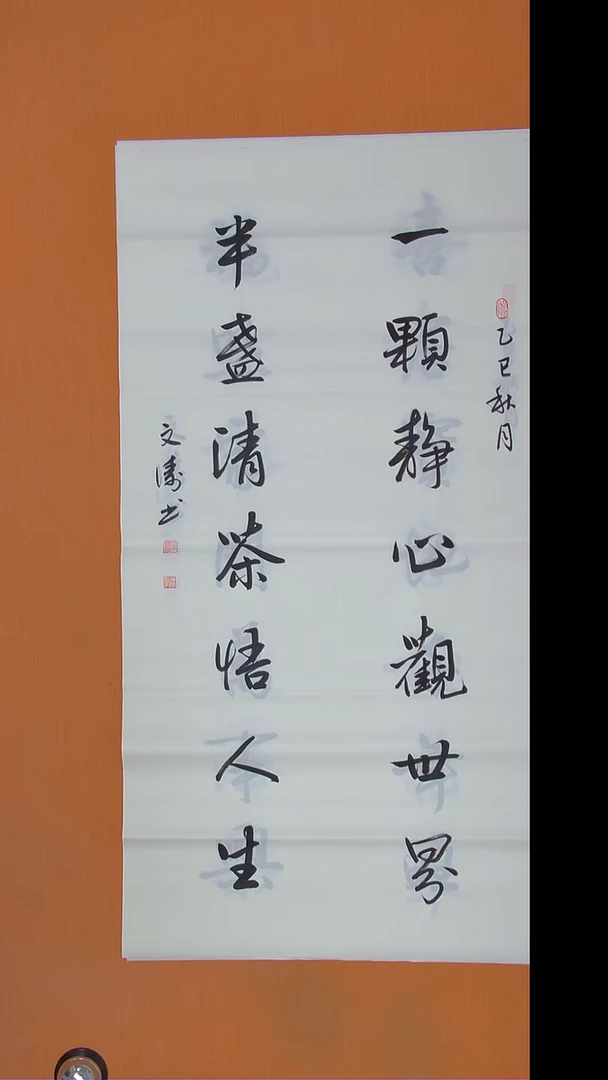 乙巳秋月
一顆靜心觀世界
半盞清茶悟人生
文濤书